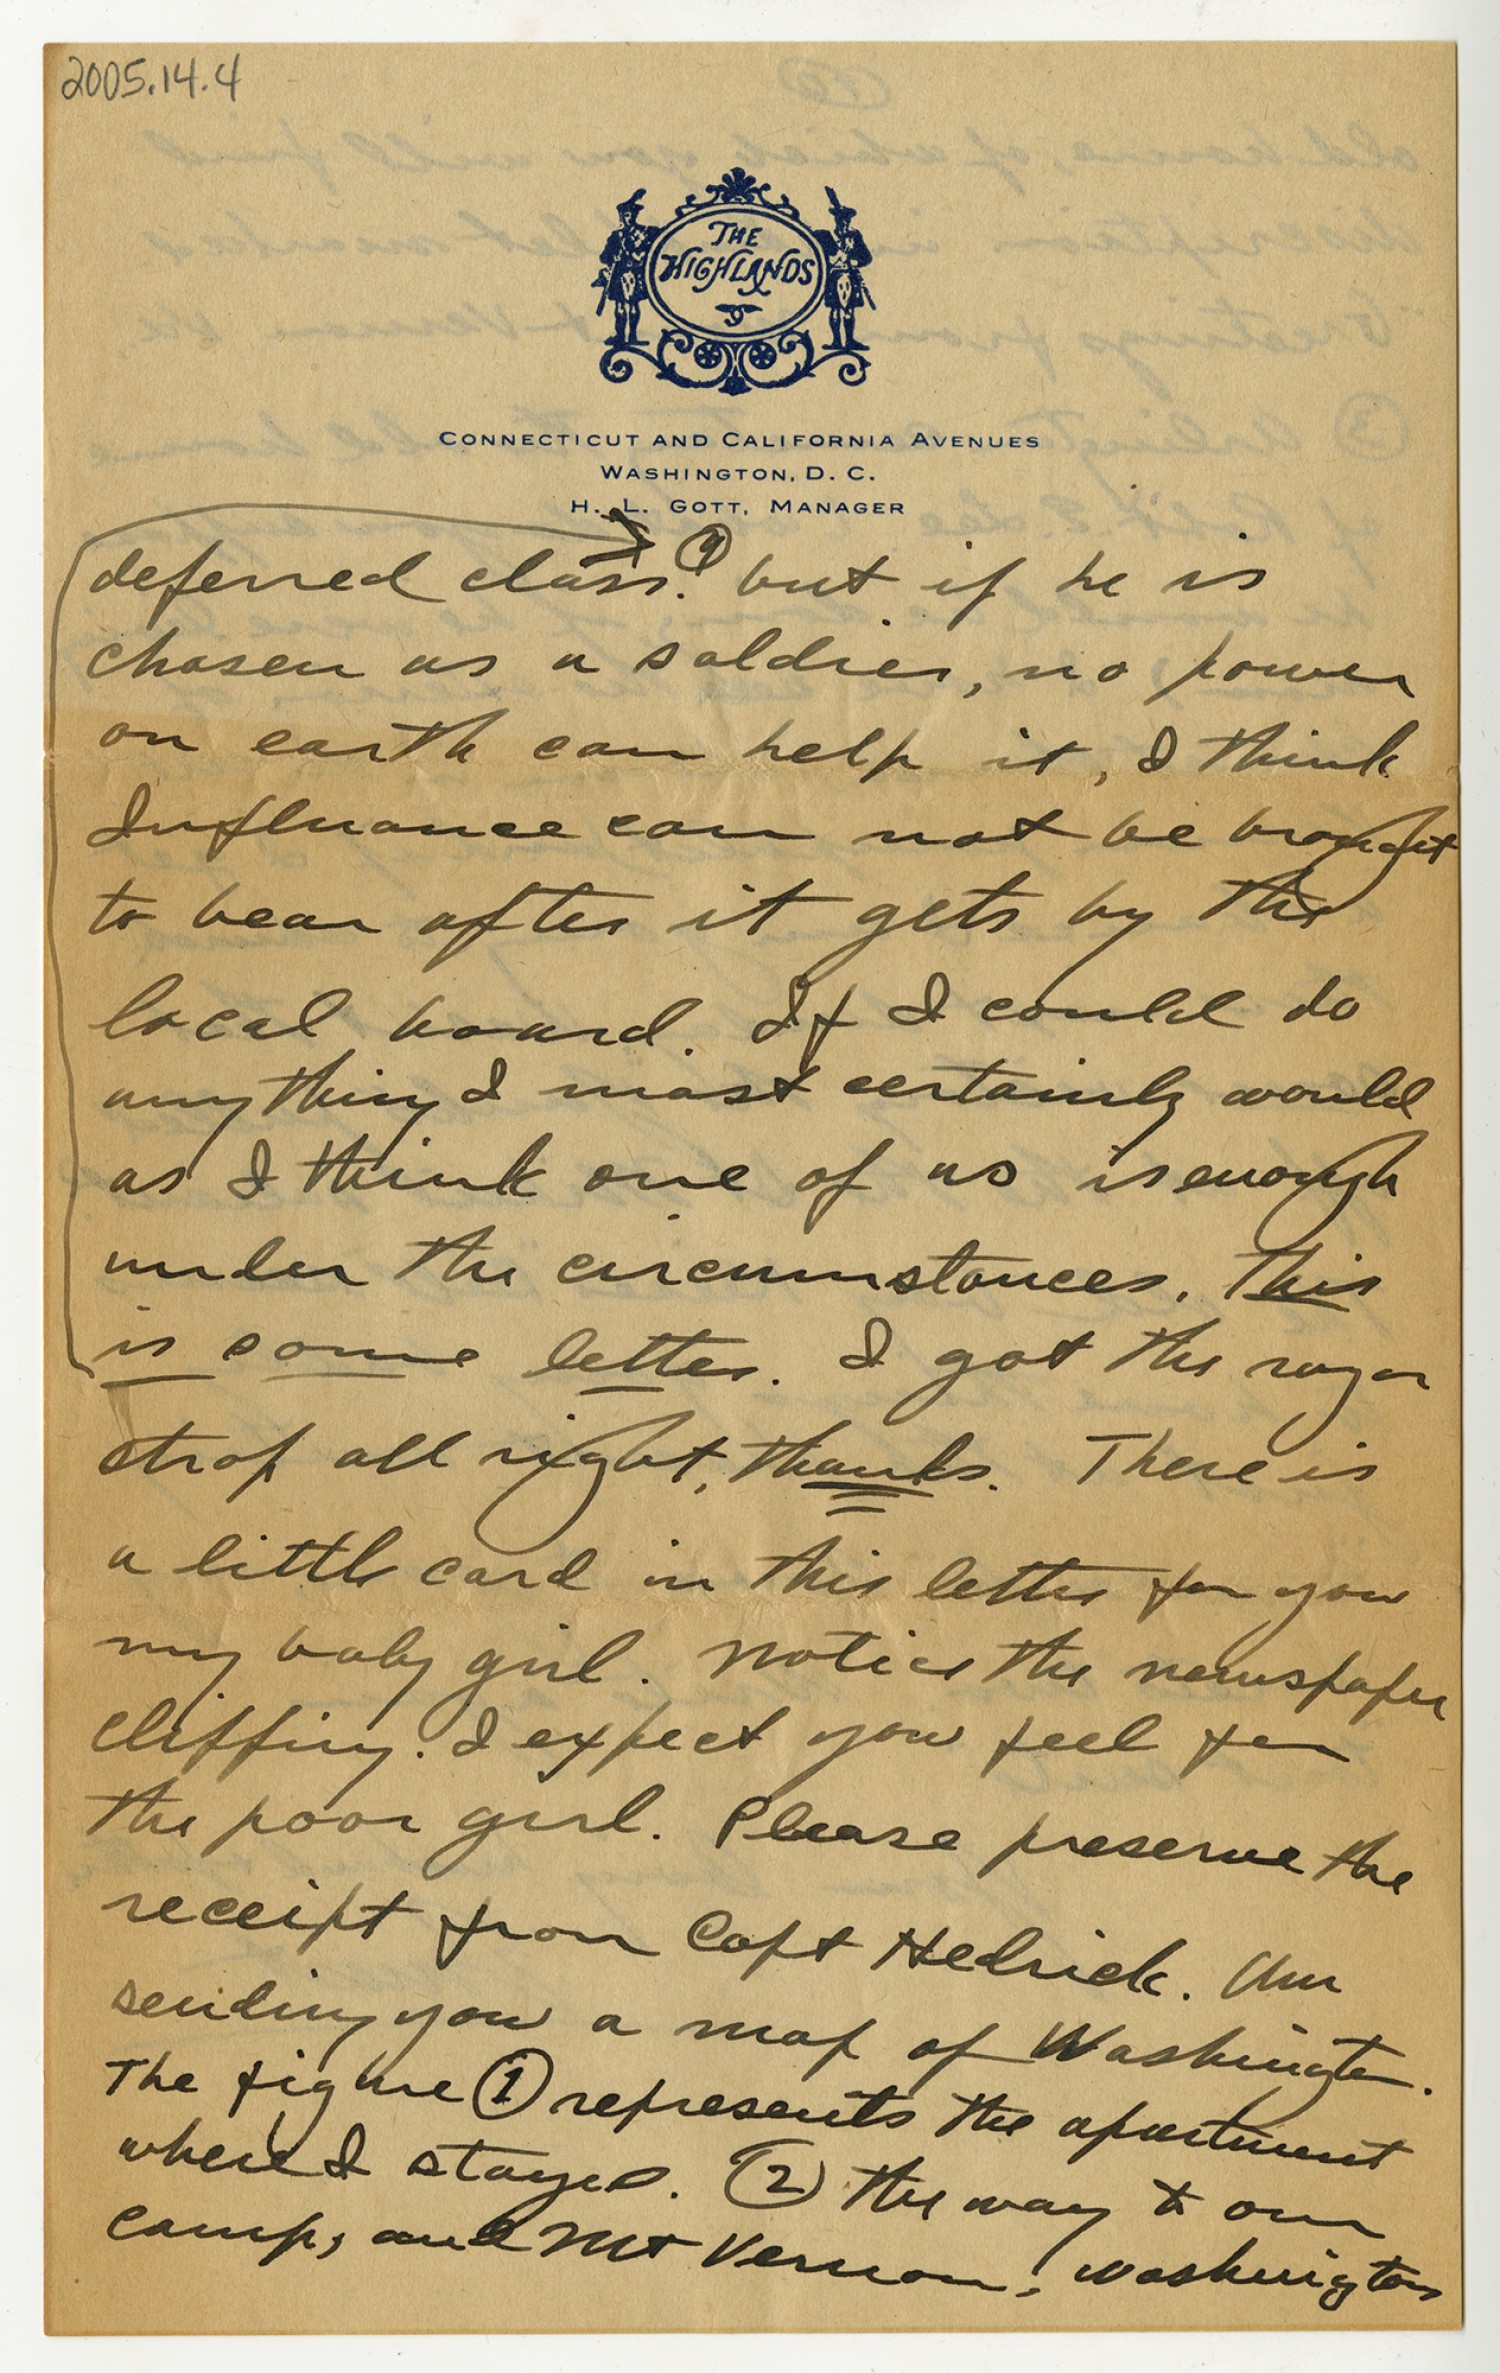 2005.14.4
THE
HIGHLANDS
CONNECTICUT AND CALIFORNIA AVENUES
WASHINGTON, D. C.
H. L. GOTT, MANAGER
9
deferred class. but if he is
chosen as a soldier, no power
on earth can help it, I think
Influnance can not be brought
to bear after it gets by the
local board. If I could do
anything I most certainly would
as I think one of us is enough
under the circumstances. This
is some letter. I got the razor
strop all right, thanks. There is
a little card in this letter for you
my baby girl. Notice the newspaper
clipping. I expect you feel for
the poor girl. Please preserve the
receipt from Capt Hedrick. Am
sending you a map of Washington.
The figure 1 represents the apartment
where I stayed. 2 the way to our
camp, and Mt Vernon, Washingtons